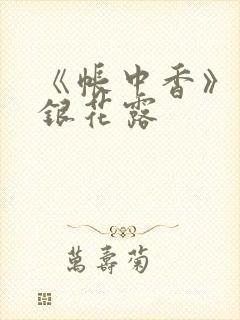 《帳中香》
銀花露
萬壽菊